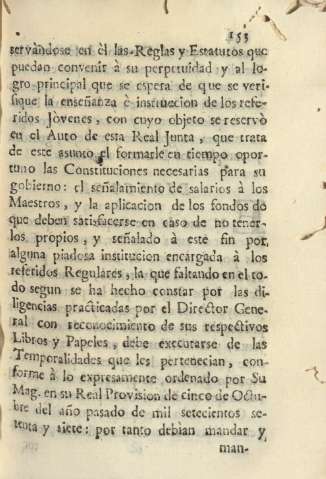 153
servandose en èl las Reglas y Estatutos que
puedan convenir à su perpetuidad y al lo-
gro principal que se espera de que se veri-
fique la enseñanza è instruccion de los refe-
ridos Jovenes, con cuyo objeto se reservò
en el Auto de esta Real Junta, que trata
de este asunto el formarle en tiempo opor-
tuno las Constituciones necesarias para su
gobierno: el señalamiento de salarios à los
Maestros, y la aplicacion de los fondos de
que deben satisfacerse en caso de no tener-
los propios, y señalado à este fin por
alguna piadosa institucion encargada à los
referidos Regulares, la que faltando en el to-
do segun se ha hecho constar por las di-
ligencias practicadas por el Director Gene-
ral con reconocimiento de sus respectivos
Libros y Papeles, debe executarse de las
Temporalidades que les pertenecian, con-
forme à lo expresamente ordenado por Su
Mag. en su Real Provision de cinco de Octu-
bre del año pasado de mil setecientos se-
tenta y siete: por tanto debian mandar y
man-